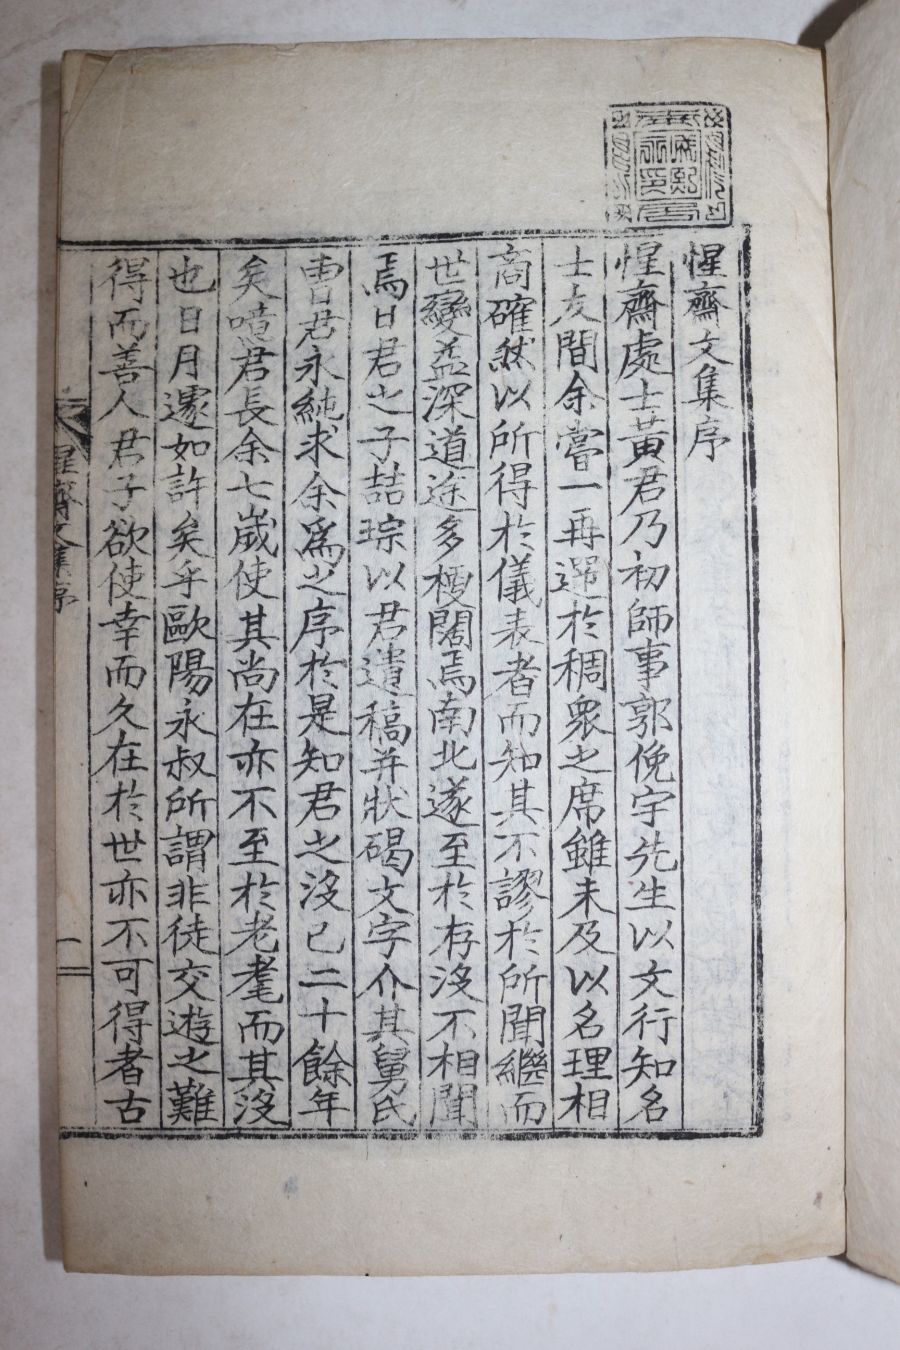 惺齋文集序
惺齋處士黃君乃初師事郭俛宇先生以文行知名
士友間余嘗一再遌於稠衆之席雖未及以名理相
商確然以所得於儀表者而知其不謬於所聞繼而
世變益深道途多梗闊焉南北遂至於存沒不相聞
焉日君之子喆琮以君遺稿并狀碣文字介其舅氏
曺君永純求余爲之序於是知君之沒已二十餘年
矣噫君長余七歲使其尚在亦不至於老耄而其沒
也日月遽如許矣乎歐陽永叔所謂非徒交遊之難
得而善人君子欲使幸而久在於世亦不可得者古
惺齋文集序
一